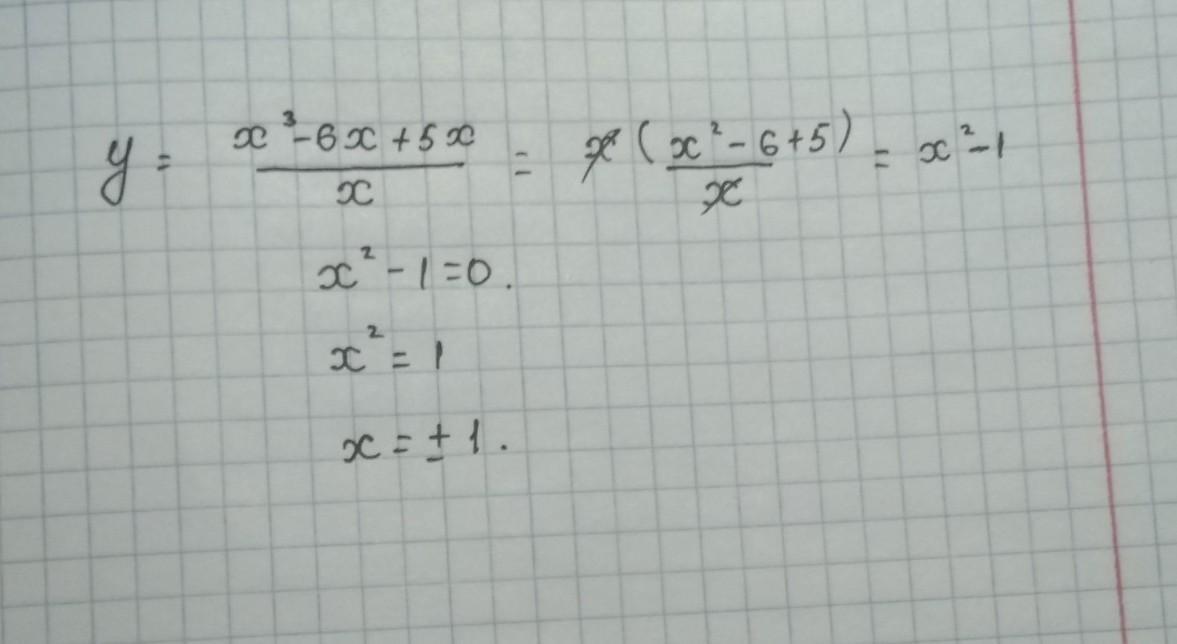 y = (x³-6x+5x)/x = x(x²-6+5)/x = x²-1
x²-1=0.
x²=1
x=±1.